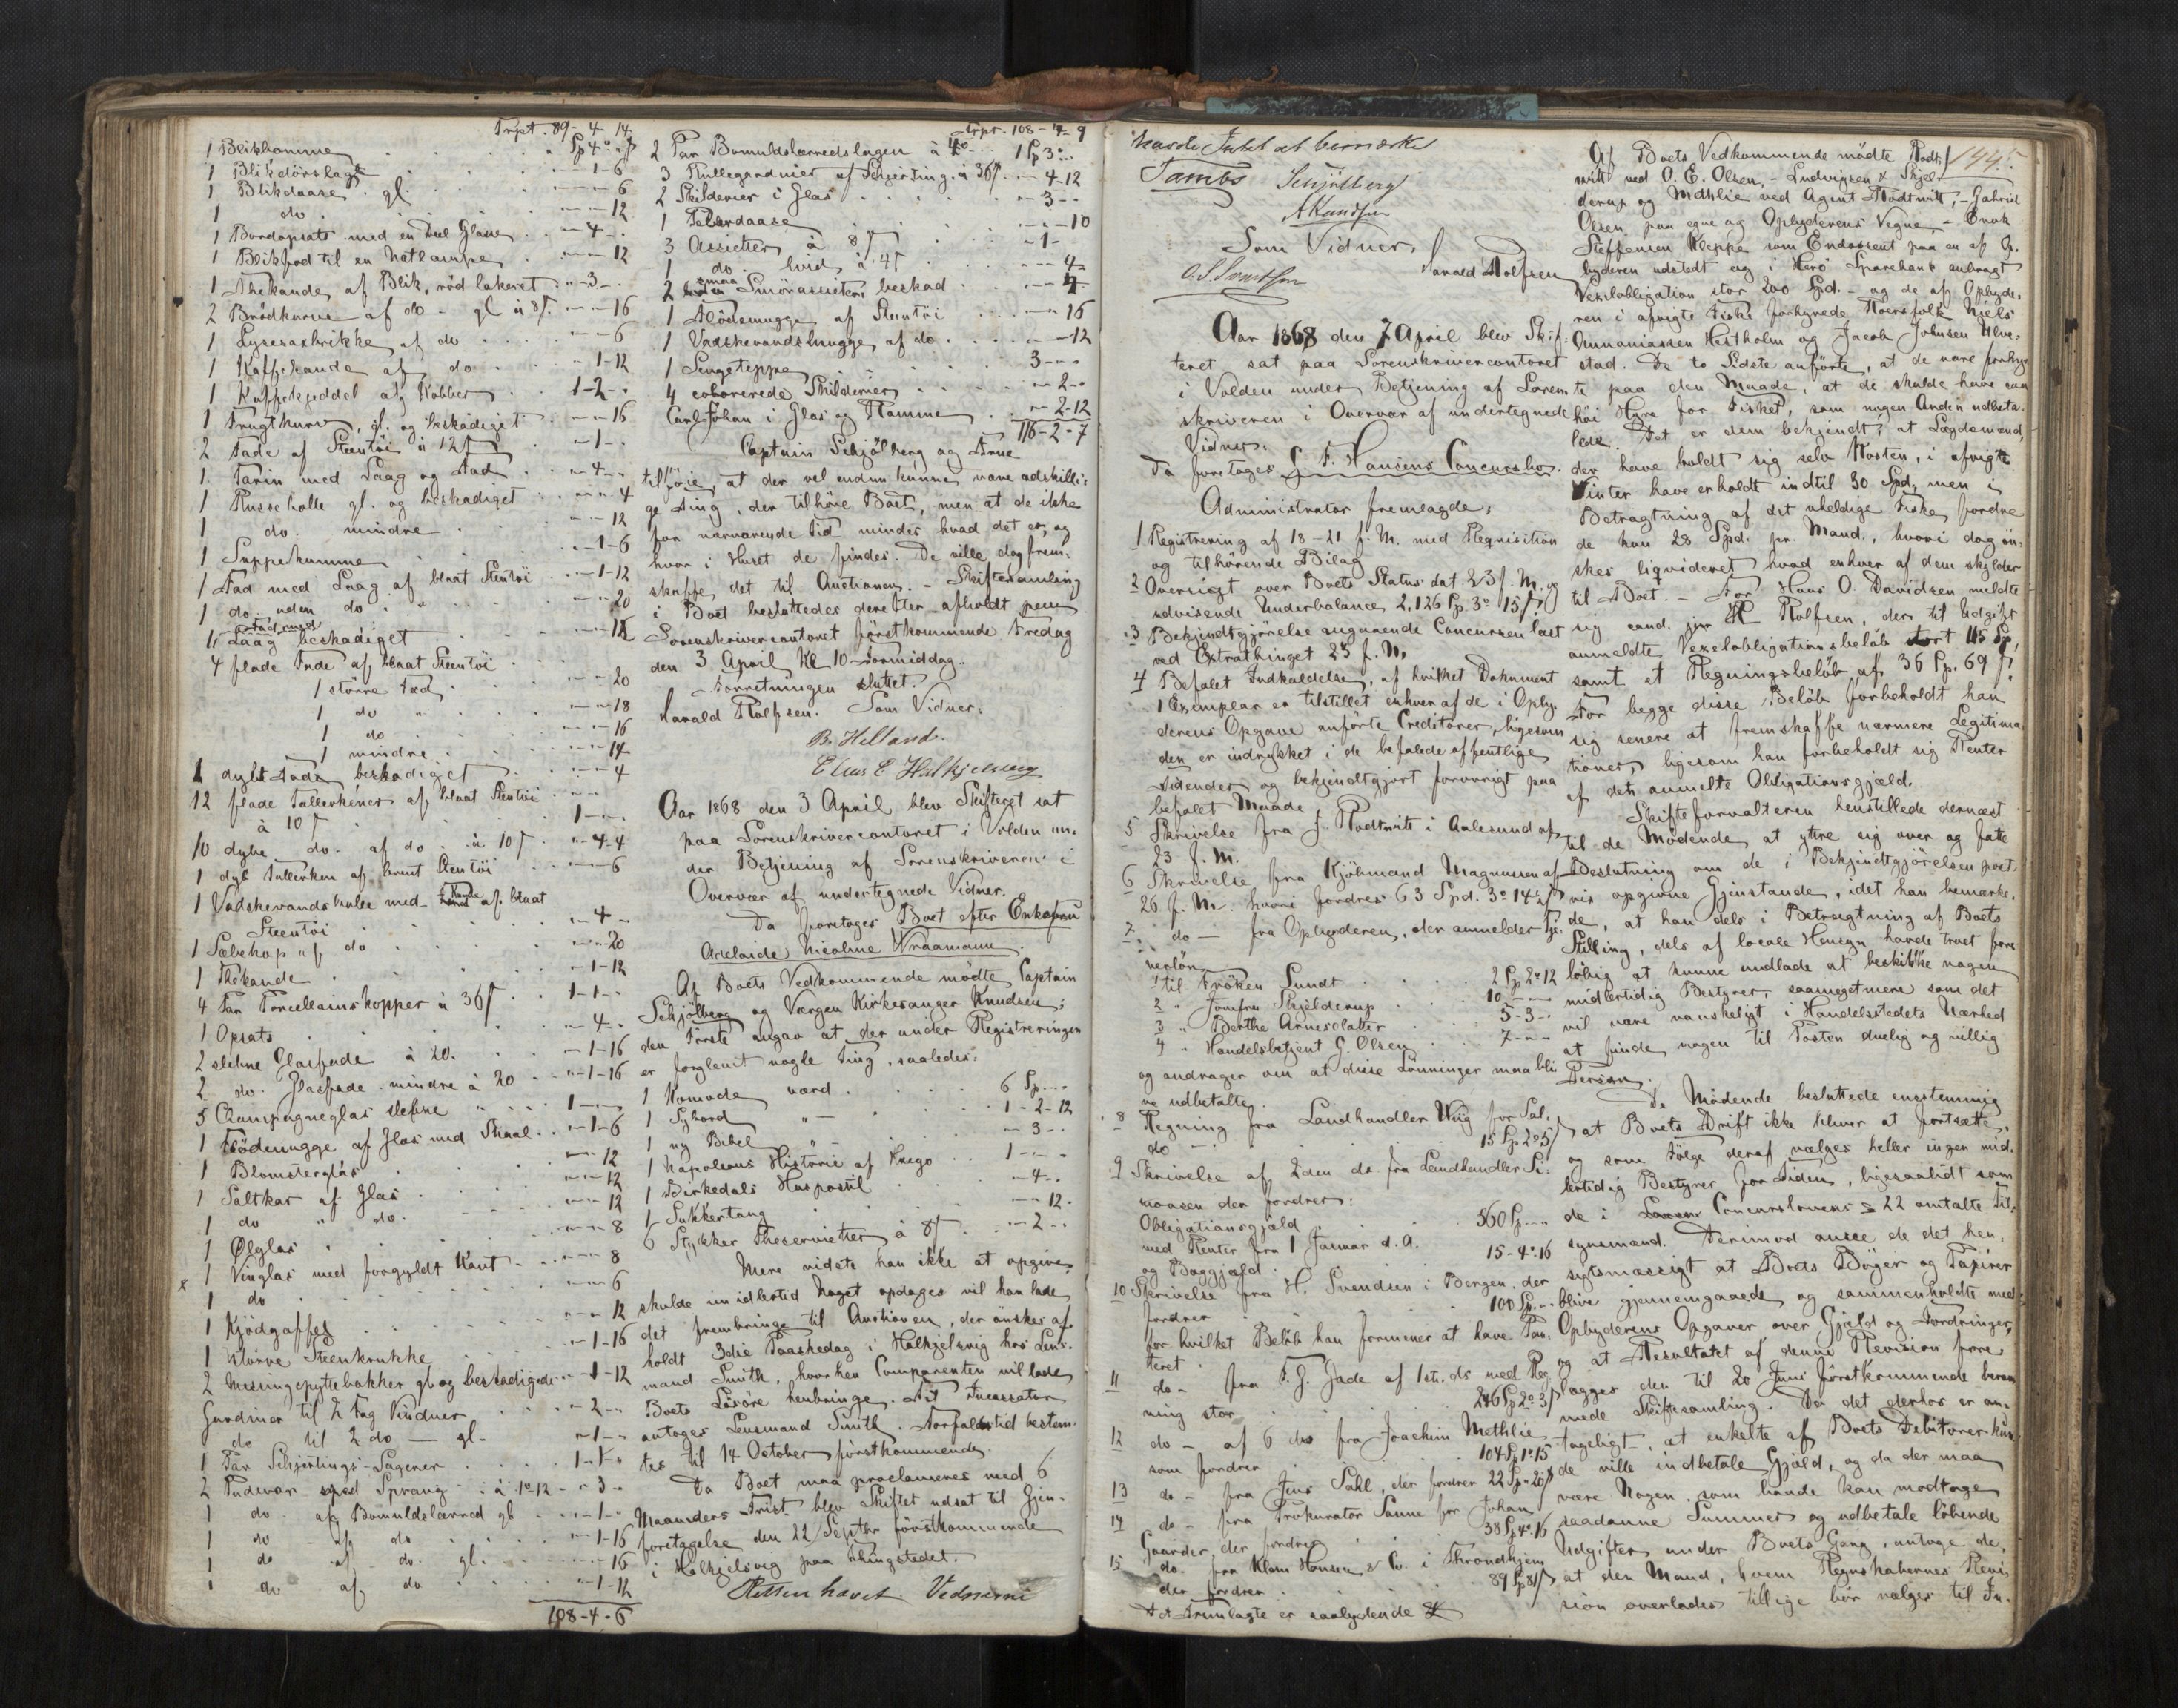 Trpt. 89-4-14.
1 Blikkomme Sp 4 " "
1 Blikdørslagt " - 1-6
1 Blikdaase gl. " - " - 6
1 do. " - " - 12
1 Bordopsats med en Deel Glasse " - 4 - "
1 Blikfad til en Natlampe " - " - 12
1 Thekande af Blik, rød lakeret " - 3 - "
2 Brødkurve af do - gl à 8 " - " - 16
1 Lysesaxbrikke af do " - " - 6
1 Kaffekande af do " - 1-12
1 Kaffekjeddel af Kobber 1-2- "
1 Frugtkurv, gl. og beskadiget " - " - 16
2 Fade af Steentøi à 12 " - 1 - "
1 Tarin med Laag og Fad " - 4 - "
1 Kusse bolle gl. og beskadiget " - " - 4
1 do. mindre " - " - 12
1 Suppekumme " - 1-6
1 Fad med Laag af blaat Steentøi " - 1-12
1 do uden do " " - " - 20
1 Fad med Laag beskadiget " - " - 12
4 flade Fade af blaat Steentøi
1 større Fad " - " - 20
1 do " " - " - 18
1 do " - " - 16
1 mindre " - " - 14
1 dybt Fade beskadiget " - " - 4
12 flade Tallerkener af blaat Steentøi
à 10 1 - " - "
10 dybe do. af do. à 10 " - 4-4
1 dyb Tallerken af brunt Steentøi " - " - 6
1 Vadskevandskulle med Kande af blaat
Steentøi " - 4 - "
1 Sæbekop af do " - " - 20
1 Thekande " - 1-12
4 Par Porcellainskopper à 36 1-1- "
1 Opsats " - 4 - "
2 slebne Glasfade à 20. " - 1-16
2 do. Glasfade mindre à 20 " - 1-16
5 Champagneglas slebne " 1 - " - "
1 Flødemugge af Glas med Skaal " - 1-6
1 Blomsterglas " - " - 12
1 Saltkar af Glas " - " - 12
1 do " do. " - " - 12
1 Ølglas " - " - 8
1 Vinglas med forgyldt Kant " - " - 8
x 1 do " - " - 6
1 Kjødgaffel " - " - 12
1 større Steenkrukke " - 1-16
2 Messingspyttebakker gl og beskadigede " - 1-12
Gardiner til 2 Fag Vinduer " - 2 - "
do til 2 do - gl. " - 1 - "
1 Par Schjertings-Lagener 1-1- "
2 Pudevar med Sprang à 1-12 " - 3 - "
1 do. af Bomuldslærred gl " - 1 - "
1 do - af do " - 1-16
1 do - af do. gl. " - " - 16
1 do af do " - 1-12
108-4-6
Trpt. 108-4-9
2 Par Bomuldslærredslagen à 4 1 Sp 3 "
3 Rullegardiner af Schjerting à 36 " - 4-12
2 Skilderier i Glas " - 3 - "
1 Peberdaase " - " - 10
3 Assietter à 8 " - 1 -
1 do. hvid à 4 " - " - 4
2 smaa Smørassietter beskad. " - " - 4
1 Flødemugge af Steentøi " - " - 16
1 Vadskevandsmugge af do. " - " - 12
1 Sengeteppe 3 - " - "
4 colorerede Skilderier " - 2 - "
Carl Johan i Glas og Ramme " - 2-12
116-2-7
Captain Schjølberg og Arne
tilføie, at der vel endnu kunne være adskilli-
ge Ting, der tilhøre Boet, men at de ikke
for nærværende Tid mindes hvad det er, og
hvor i Huset de findes. De ville dog frem-
skaffe det til Auctionen. - Skiftesamling
i Boet besluttedes derefter afholdt paa
Sorenskrivercontoret førstkommende Fredag
den 3 April Kl 10 Formiddag.
Forretningen sluttet.
Harald Rolfsen. Som Vidner:
B. Helland.
Elias E Halkjelsvig
Aar 1868 den 3 April blev Skifteret sat
paa Sorenskrivercontoret i Volden un-
der Betjening af Sorenskriveren i
Overvær af undertegnede Vidner.
Da foretages Boet efter Enkefru
Adelaide Nicoline Wraamann.
Af Boets Vedkommende mødte Captain
Schjølberg og Værgen Kirkesanger Knudsen;
den Første angav at der under Registreringen
er forglemt nogle Ting, saaledes:
1 Komode værd 6 Sp " "
1 Sybord " - 1-2-12
1 ny Bibel " - " - 3 - "
1 Napoleons Historie af Hugo 1 - " - "
1 Birkedals Huspostil " - 4 - "
1 Sukkertang " - " - 12.
6 Stykker Theservietter à 8 " - 2 - "
Mere vidste han ikke at opgive,
skulde imidlertid Noget opdages vil han lade
det frembringe til Auctionen, der ønskes af-
holdt 3die Paaskedag i Halkjelsvig hos Lens-
mand Smith, hvorhen Comparenten vil lade
Boets Løsøre henbringe. Til Incassator
antoges Lensmand Smith. Forfaldstid bestem-
tes til 14 October førstkommende.
Da Boet maa proclameres med 6
Maaneders Frist blev Skiftet udsat til Gjen-
foretagelse den 22 Septbr førstkommende
i Halkjelsvig paa Thingstedet.
Retten hævet. Vedkomne
havde Intet at bemærke
Tambs Schjølberg
A Knudsen
Som Vidner,
Harald Rolfsen
Aar 1868 den 7 April blev Skif-
teret sat paa Sorenskrivercontoret
i Volden under Betjening af Soren-
skriveren i Overvær af undertegnede
Vidner.
Da foretages L. F. Hansens Concursbo.
Administrator fremlagde:
1 Registrering af 18-21 f. M. med Requisition
og tilhørende Bilag
2 Oversigt over Boets Status dat 23 f. M. og
udvisende Underbalance 2,126 Sp. 3 15
3 Bekjendtgjørelse angaaende Concursen læst
ved Extrathinget 23 f. M.
4 Befalet Indkaldelse, af hvilket Dokument
1 Exemplar er tilstillet enhver af de i Opby-
derens Opgave anførte Creditorer, ligesom
den er indrykket i de befalede offentlige
Tidender og bekjendtgjort forøvrigt paa
befalet Maade
5 Skrivelse fra J. Rodtwitt i Aalesund af
23 f. M.
6 Skrivelse fra Kjøbmand Magnussen af
26 f. M. hvori fordres 63 Spd. 3 14
7. do - fra Opbyderen, der anmelder Tje-
nerløn
1 til Frøken Sundt 2 Sp 2 12
2 " Jomfru Skjelderup 10 - " - "
3 " Berthe Arnesdatter 5-3- "
4 " Handelsbetjent G. Olsen 7 - " - "
og andrager om at disse Lønninger maa bli-
ve udbetalte.
8 Regning fra Landhandler Wiig for Sal.
do - 15 Sp 2 5
9 Skrivelse af 2den ds fra Landhandler Si-
monsen der fordrer:
Obligationsgjæld 560 Sp " "
med Renter fra 1 Januar d. A.
og Boggjæld 15-4-16
10 Skrivelse fra H. Svendsen i Bergen, der
fordrer 100 Sp " "
for hvilket Beløb han formener at have Pan-
teret.
11 do - fra F. G. Gade af 1ste ds med Reg-
ning stor 246 Sp 2 3
12 do - af 6 ds fra Joachim Methlie
som fordrer 104 Sp 1 15
13 do - fra Jens Dahl, der fordrer 22 Sp " 20
14 do - fra Prokurator Sanne for Johan
Gaarder, der fordrer 38 Sp 4 16
15 do. fra Klem Hansen & Co. i Throndhjem
der fordrer 89 Sp 81
Det Fremlagte er saalydende
144.
Af Boets Vedkommende mødte Rodt-
witt ved O. E. Olsen, - Ludvigsen & Skjel-
derup og Methlie ved Agent Rodtwitt, - Gabriel
Olsen paa egne og Opbyderens Vegne, - Enok
Steffensen Kleppe som Endossent paa en af Op-
byderen udstedt og i Herø Sparebank anbragt
Vexelobligation stor 200 Spd. - og de af Opbyde-
ren i afvigte Fiske forhyrede Roersfolk Niels
Annaniassen Hestholm og Jacob Johnsen Ulve-
stad. De to Sidste anførte, at de vare forhyr-
te paa den Maade, at de skulde have saa
høi Hyre for Fisket, som nogen Anden udbeta-
lede. Det er dem bekjendt, at Lægdsmænd,
der have holdt sig selv Kosten, i afvigte
Vinter have erholdt indtil 30 Spd, men i
Betragtning af det uheldige Fiske, fordre
de kun 28 Spd. pr. Mand., hvori dog øn-
skes liqvideret hvad enhver af dem skylder
til Boet. - For Hans O. Davidsen meldte
sig cand. jur H Rolfsen, der til Udgift
anmeldte Vexelobligationsbeløb stort 115 Sp,
samt et Regningsbeløb af 36 Sp. 69
For begge disse Beløb forbeholdt han
sig senere at fremskaffe nærmere Legitima-
tioner, ligesom han forbeholdt sig Renter
af den anmeldte Obligationsgjæld.
Skifteforvalteren henstillede dernæst
til de Mødende at yttre sig over og fatte
Beslutning om de i Bekjendtgjørelsen post-
vis opgivne Gjenstande, idet han bemærke-
de, at han dels i Betragtning af Boets
Stilling, dels af locale Hensyn havde troet fore-
løbig at kunne undlade at beskikke nogen
midlertidig Bestyrer, saameget mere som det
vil være vanskeligt i Handelsstedets Nærhed
at finde nogen til Posten duelig og villig
Person.
De Mødende besluttede enstemmig
at Boets Drift ikke bliver at fortsætte,
og som Følge deraf vælges heller ingen mid-
lertidig Bestyrer for Tiden, ligesaalidt som
de i Concurslovens § 22 omtalte Til-
synsmænd. Derimod ansee de det hen-
sigtsmæssigt at Boets Bøger og Papirer
blive gjennemgaaede og sammenholdte med
Opbyderens Opgaver over Gjæld og Fordringer,
og at Resultatet af denne Revision fore-
lægges den til 20 Juni førstkommende beram-
mede Skiftesamling. Da det derhos er an-
tageligt, at enkelte af Boets Debitorer kun-
de ville indbetale Gjæld, og da der maa
være Nogen som kan modtage
saadanne Summer og udbetale løbende
Udgifter under Boets Gang, antage de,
at den Mand, hvem Regnskabernes Revi-
sion overlades tillige bør vælges til In-